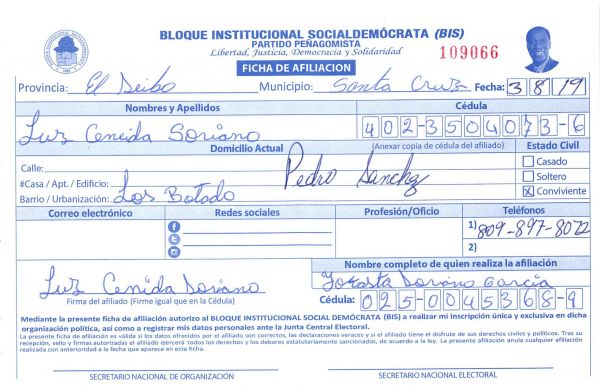 BLOQUE INSTITUCIONAL SOCIALDEMÓCRATA (BIS)
PARTIDO PEÑAGOMISTA
Libertad, Justicia, Democracia y Solidaridad
109066
FICHA DE AFILIACION
Provincia: El Seibo Municipio: Santa Cruz Fecha: 3/8/19
Nombres y Apellidos Cédula
Luz Ceneida Soriano 402-3504073-6
Domicilio Actual (Anexar copia de cédula del afiliado) Estado Civil
Calle: Pedro Sanchez Casado
#Casa / Apt. / Edificio: Soltero
Barrio / Urbanización: Los Botado X Conviviente
Correo electrónico Redes sociales Profesión/Oficio Teléfonos
1) 809-897-8072
2)
Nombre completo de quien realiza la afiliación
Luz Cenida Soriano Yokasta Soriano García
Firma del afiliado (Firme igual que en la Cédula) Cédula: 025-0045368-9
Mediante la presente ficha de afiliación autorizo al BLOQUE INSTITUCIONAL SOCIAL DEMÓCRATA (BIS) a realizar mi inscripción única y exclusiva en dicha
organización política, así como a registrar mis datos personales ante la Junta Central Electoral.
La presente ficha de afiliación es válida si los datos ofrecidos por el afiliado son correctos, las declaraciones veraces y si el afiliado tiene el disfrute de sus derechos civiles y políticos. Tras su
recepción, sello y firmas autorizadas el afiliado ejercerá todos los derechos y los deberes estatutariamente sancionados, de acuerdo a la ley. La presente afiliación anula cualquier afiliación
realizada con anterioridad a la fecha que aparece en esta ficha.
SECRETARIO NACIONAL DE ORGANIZACIÓN SECRETARIO NACIONAL ELECTORAL